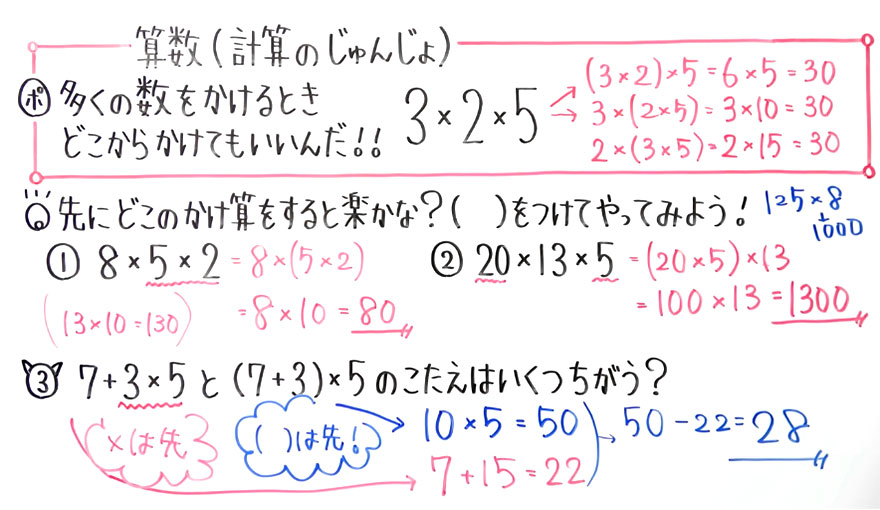 算数(計算のじゅんじょ)
ポ 多くの数をかけるとき
どこからかけてもいいんだ!!
3×2×5
(3×2)×5=6×5=30
3×(2×5)=3×10=30
2×(3×5)=2×15=30
先にどこのかけ算をすると楽かな?( )をつけてやってみよう!
125×8
1000
① 8×5×2=8×(5×2)
=8×10=80
(13×10=130)
② 20×13×5=(20×5)×13
=100×13=1300
③ 7+3×5と(7+3)×5のこたえはいくつちがう?
×は先
( )は先!
10×5=50
7+15=22
50-22=28